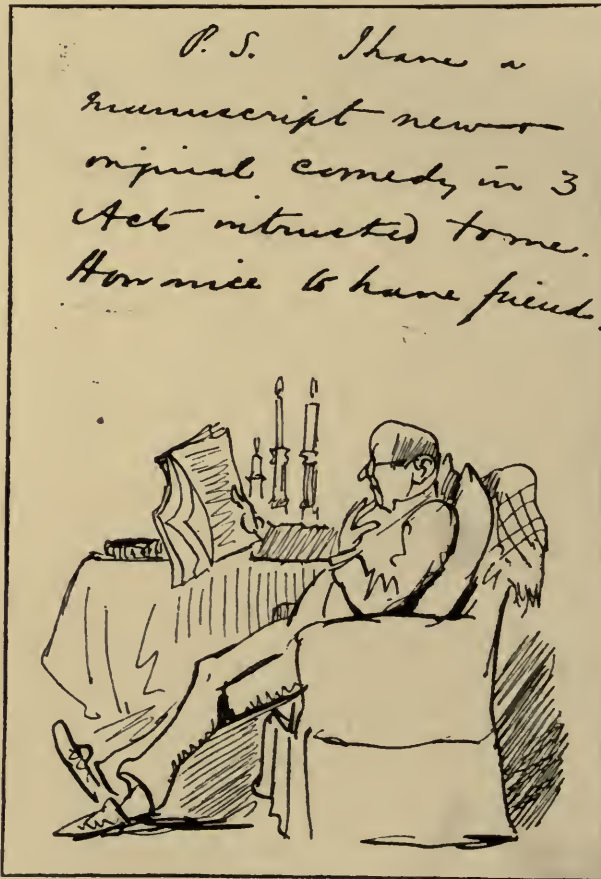 P. S. I have a
manuscript new &
original comedy in 3
Acts intrusted to me.
How nice to have friends.